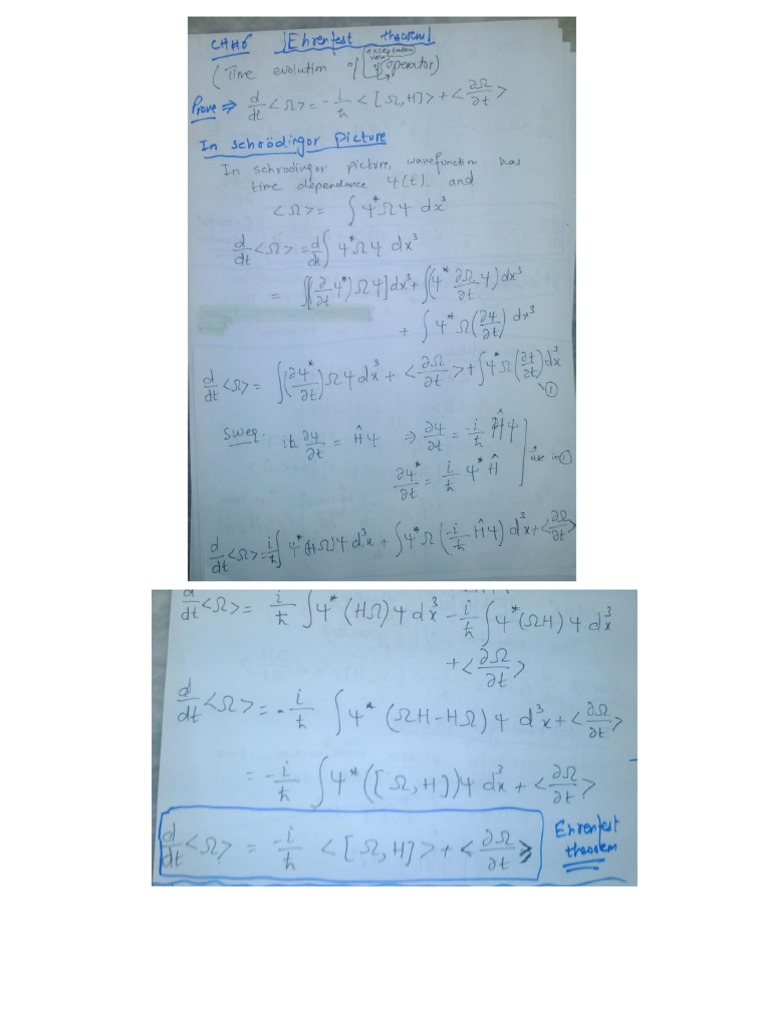 CHH6 Ehrenfest theorem
(Time evolution of operator)
Prove ⇒ d/dt <Ω> = -i/ħ <[Ω,H]> + <∂Ω/∂t>
In schroödingor picture
In schrodingor picture, wavefunction has
time dependance ψ(t). and
<Ω> = ∫ψ*Ωψ dx³
d/dt <Ω> = d/dt ∫ψ*Ωψ dx³
= ∫[(∂/∂t ψ*)Ωψ]dx³ + ∫(ψ* ∂Ω/∂t ψ)dx³
+ ∫ψ*Ω(∂ψ/∂t) dx³
d/dt <Ω> = ∫(∂ψ*/∂t)Ωψdx³ + <∂Ω/∂t> + ∫ψ*Ω(∂t/∂t)dx³
①
Sweq. iħ ∂ψ/∂t = Ĥψ ⇒ ∂ψ/∂t = -i/ħ Ĥψ
∂ψ*/∂t = i/ħ ψ*Ĥ
use in ①
d/dt <Ω> = i/ħ ∫ψ*(HΩ)ψd³x + ∫ψ*Ω(-i/ħ Ĥψ)d³x + <∂Ω/∂t>
d/dt <Ω> = i/ħ ∫ψ*(HΩ)ψdx³ - i/ħ ∫ψ*(ΩH)ψdx³
+ <∂Ω/∂t>
d/dt <Ω> = -i/ħ ∫ψ*(ΩH-HΩ)ψ d³x + <∂Ω/∂t>
= -i/ħ ∫ψ*([Ω,H])ψd³x + <∂Ω/∂t>
d/dt <Ω> = -i/ħ <[Ω,H]> + <∂Ω/∂t>
Ehrenfest
theorem